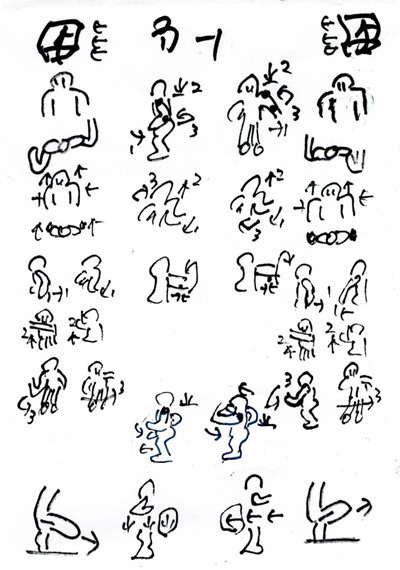 2 2
1 3 1 3
3 2 2
1 3 1
1 1 1
2 2 2 2
3 3 3 3